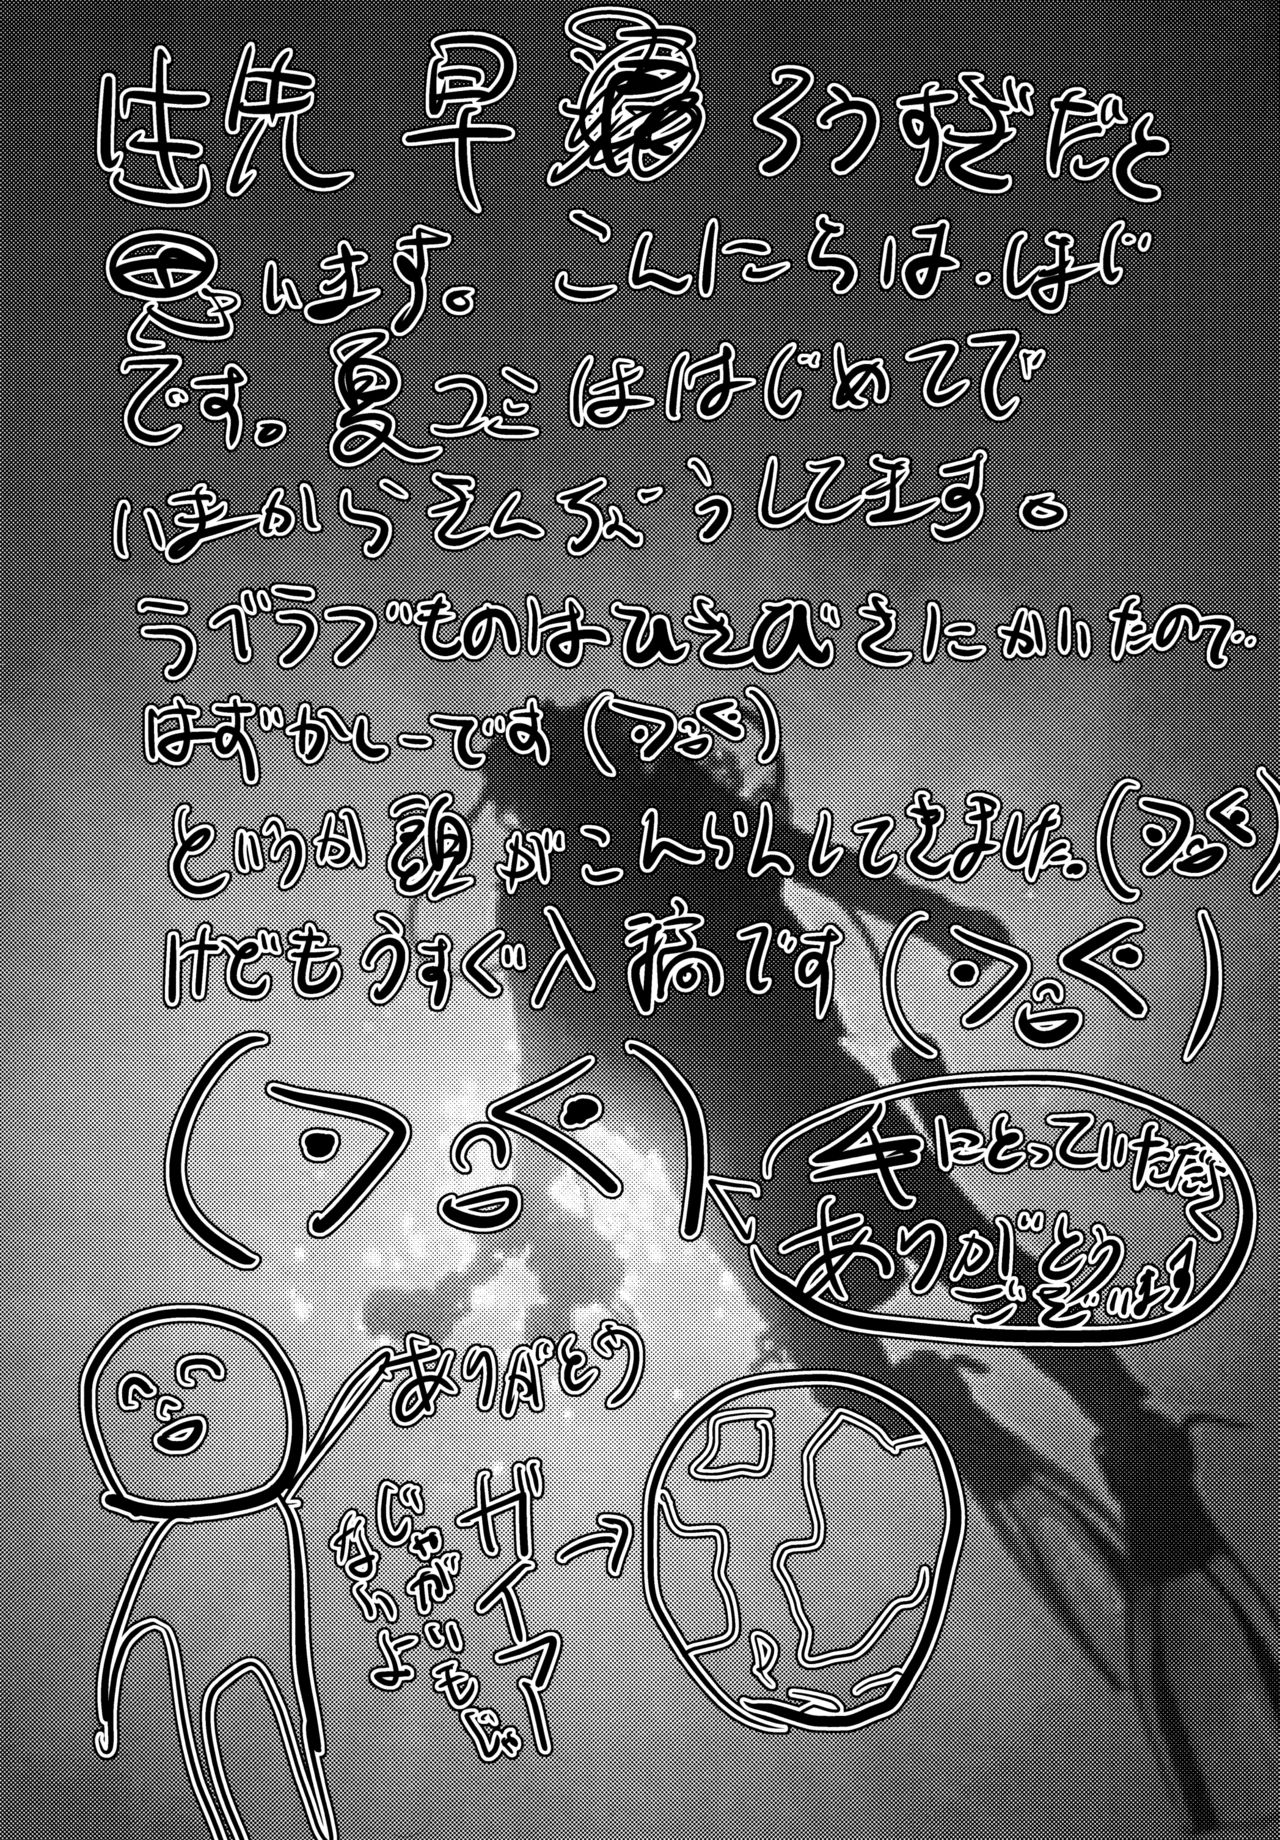 早 ろうすぎだと
思います。こんにちは、はじ
です。夏コミははじめてで
いまからそんぶうしてます。
ラブラブものはひさびさにかいたので
はずかしーです(>。<)
というか頭がこんらんしてきました。(>。<)
けどもうすぐ入稿です(>。<)
(>。<)
手にとっていただく
ありがとう
ございます
ありがとう
ガイアー→
じゃがいもじゃ
ないよ